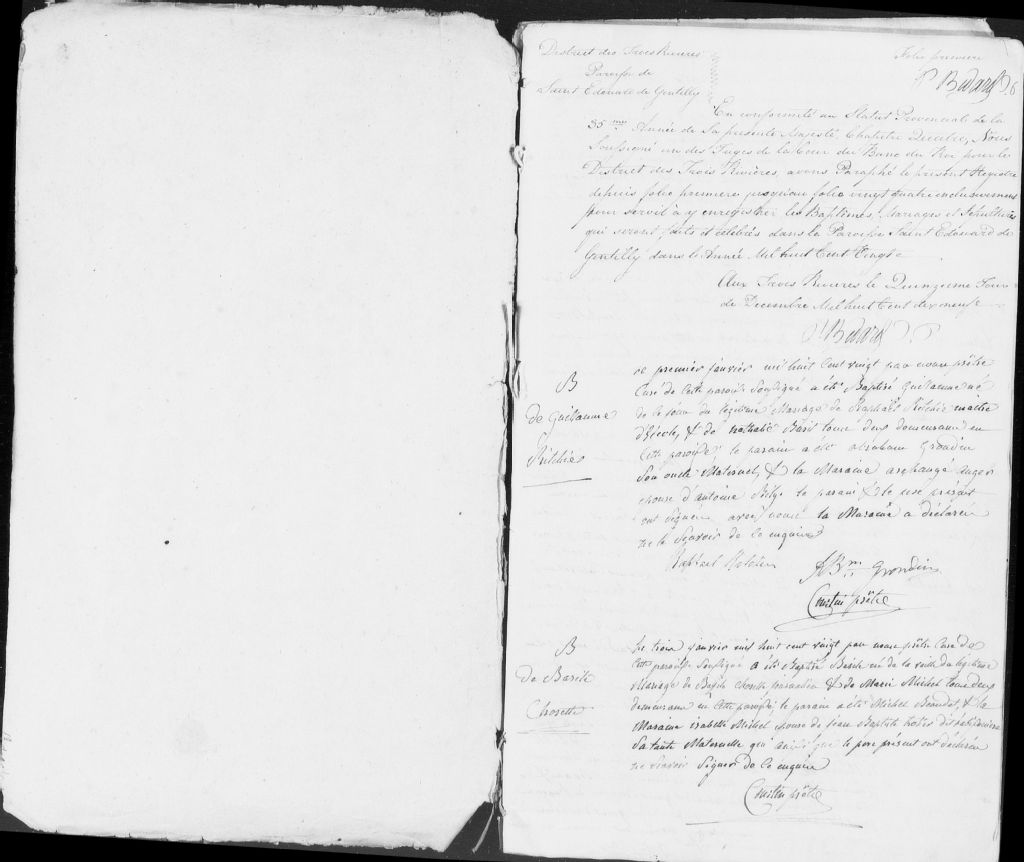 District des Trois Rivieres
Paroisse de
Saint Edouard de Gentilly
Folio premiere
P Bedard
En conformité au Statut Provinciale de la
35me Année de Sa présente Majesté, Chapitre Quatre, Nous
Soussigné un des Juges de la Cour du Banc du Roi pour le
District des Trois Rivières, avons Paraphé le présent Registre
depuis folio premiere jusqu'au folio vingt quatre inclusivement
pour servir à y enregistrer les Baptêmes, Mariages et Sépultures
qui seront faits et célébrés dans la Paroisse Saint Edouard de
Gentilly dans l'Année Mil huit Cent Vingt
Aux Trois Rivieres le Quinzieme Jour
de Decembre Mil huit Cent dix neuf
P Bedard
B
de Guillaume
Ritchie
Le premier janvier mil huit Cent vingt par nous prêtre
Curé de Cette paroisse Soussigné a été Baptisé Guillaume né
de ce jour du légitime Mariage de Raphaël Ritchie maitre
d'Ecole, & de Baril tous deux demeurans en
Cette paroisse le parain a été abraham Grondin
Son oncle Maternel, & la Maraine archange auger
epouse d'antoine le parain & le pere présent
ont Signés avec nous la Maraine a déclaré
ne le Scavoir de Ce enquise
Raphaël
Abm Grondin
prêtre
B
de Basile
Chorette
Le trois janvier mil huit cent vingt par nous prêtre Curé de
Cette paroisse Soussigné a été Baptisé Basile né de la veille du légitime
Mariage de Basile Chorette & de Marie Michel tous deux
demeurans en Cette paroisse; le parain a été Michel Beaudet, & la
Maraine isabelle Michel epouse de jean Baptiste
Sa tante Maternelle qui ainsi que le pere présent ont déclaré
ne Scavoir Signer de Ce enquis
prêtre